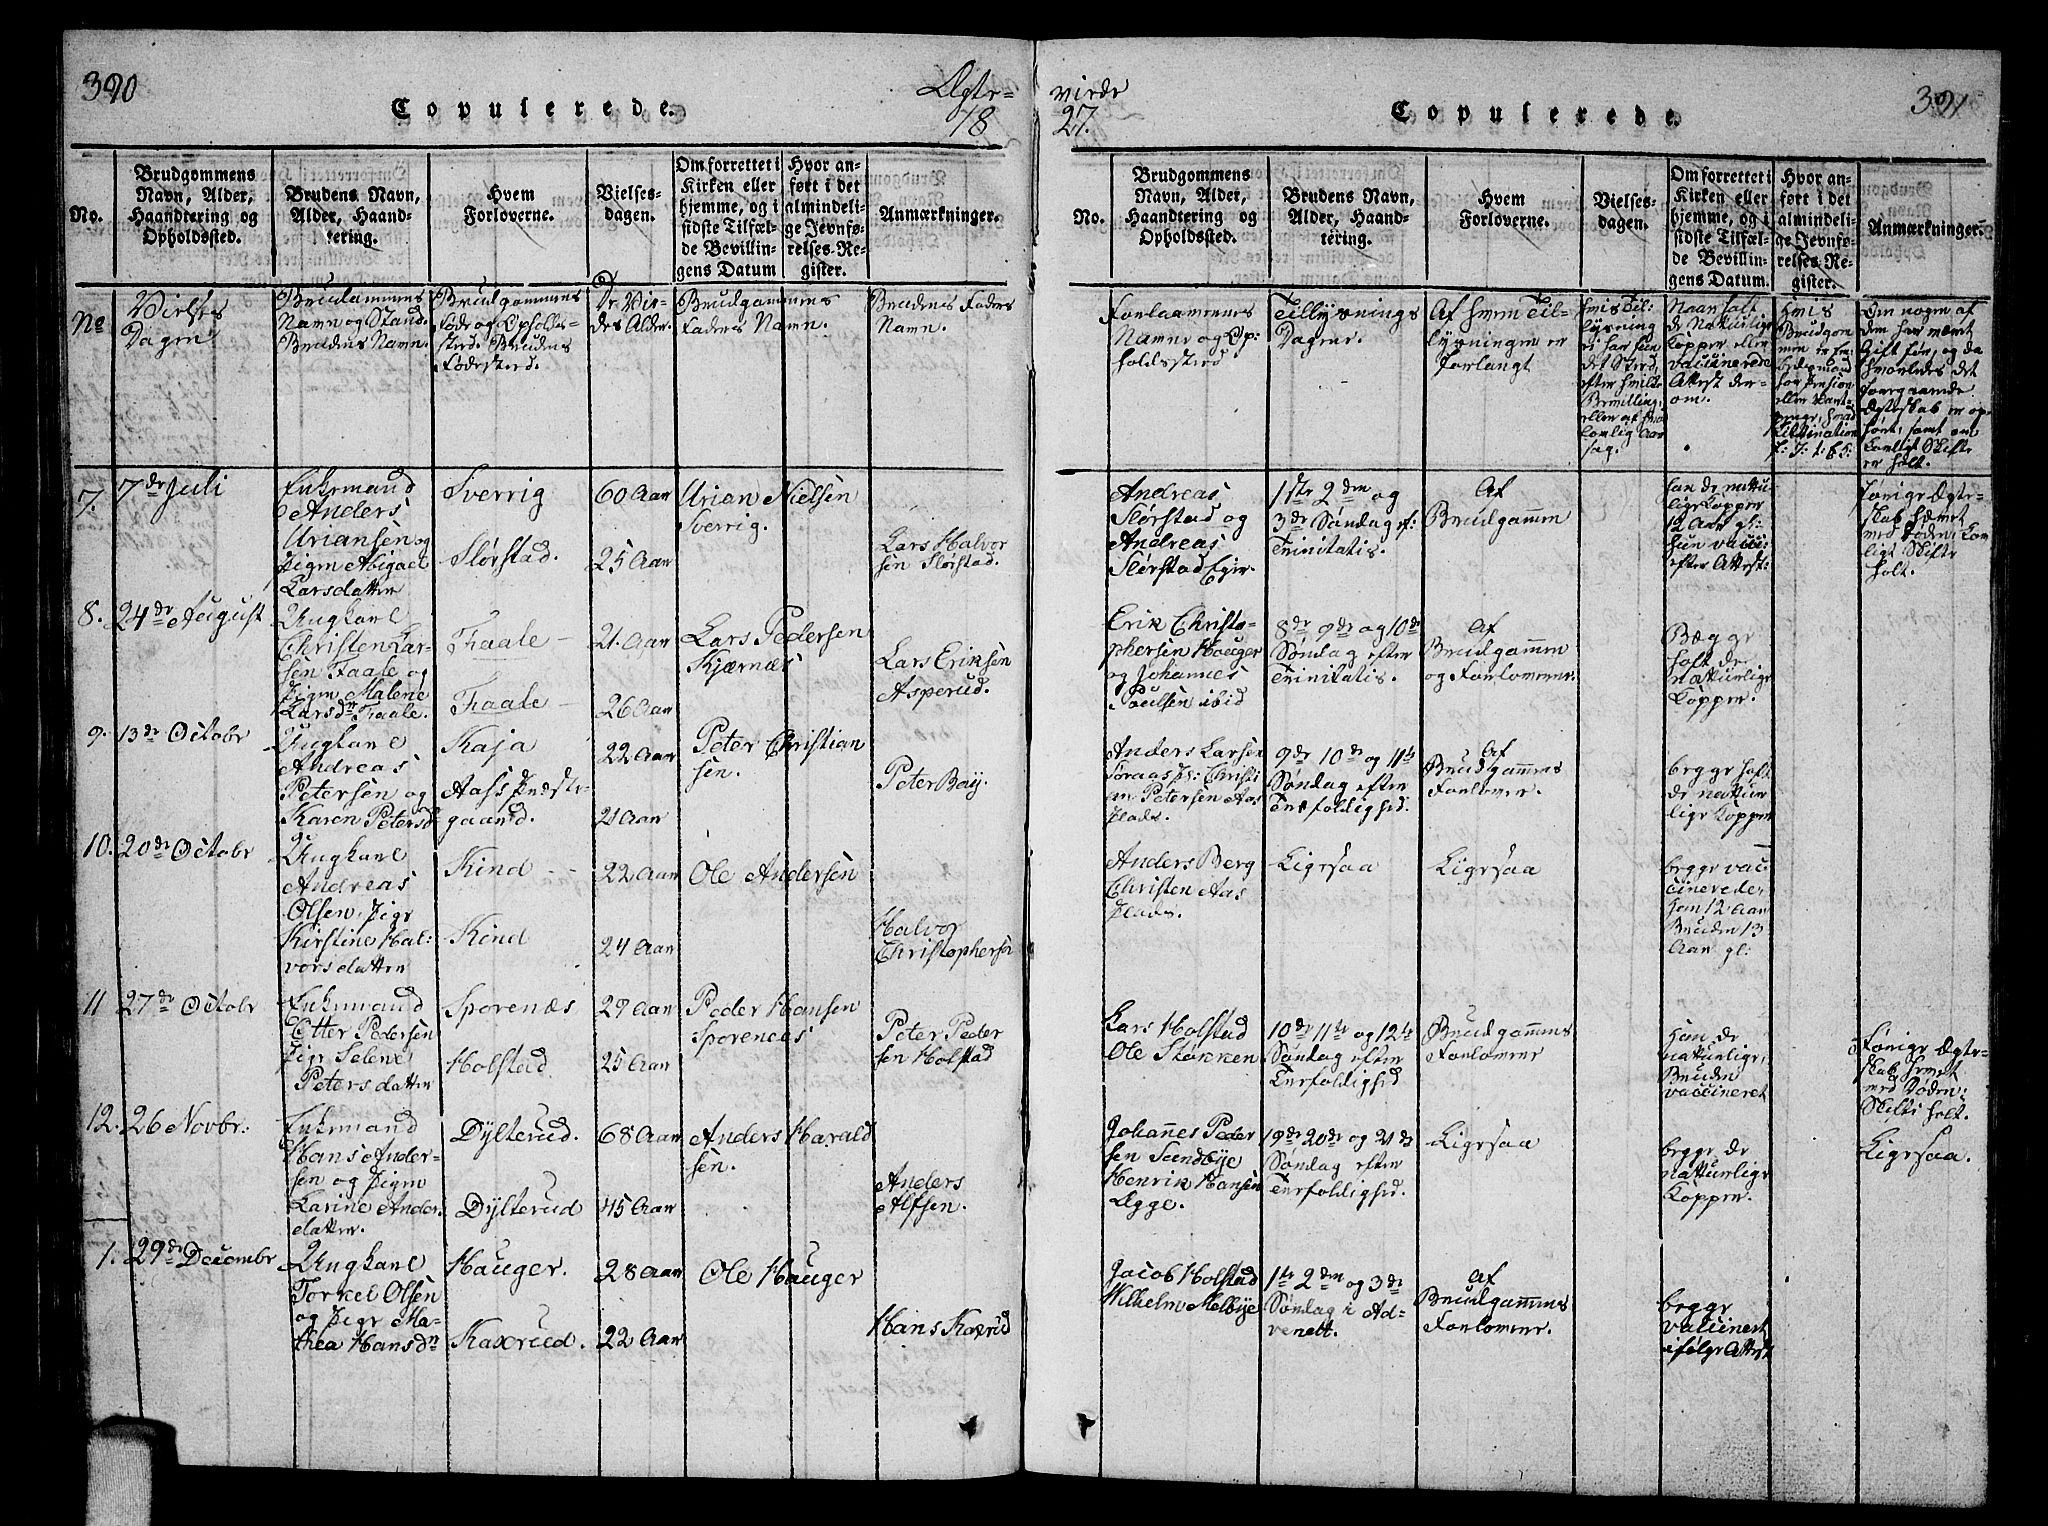 390
Copulerede.
Ægte-
18
No.
Brudgommens
Navn, Alder,
Haandtering og
Opholdssted.
Brudens Navn,
Alder, Haand-
tering.
Hvem
Forloverne.
Vielses-
dagen.
Om forrettet i
Kirken eller
hjemme, og i
sidste Tilfæl-
de Bevillin-
gens Datum
Hvor an-
ført i det
almindeli-
ge Jevnfø-
relses-Re-
gister.
Anmærkninger.
No
Vielses
Dagen
Brudgommens
Navn og Stand.
Brudens Navn.
Brudgommens
Føde og Opholds-
sted. Brudens
Fødested.
De Vie-
des Alder.
Brudgommens
Faders Navn.
Brudens Faders
Navn.
7.
7de Juli
Enkemand
Anders
Uriansen og
Pigen Abigael
Larsdatter
Sverrig
Slørstad.
60 Aar
25 Aar
Urian Nielsen
Sverrig.
Lars Halvor
sen Slørstad.
8.
24de August
Ungkarl
Christen Lar-
sen Faale og
Pigen Malene
Larsdr Faale.
Faale
Faale
21 Aar
26 Aar
Lars Pedersen
Kjærnæs
Lars Eriksen
Asperud.
9.
13de Octobr
Ungkarl
Andreas
Petersen og
Karen Petersd
Kaja
Aas Præste-
gaard.
22 Aar
21 Aar
Peter Christian
sen.
Peter Bay.
10.
20de Octobr
Ungkarl
Andreas
Olsen, Pige
Kirstine Hal-
vorsdatter
Kind
Kind
22 Aar
24 Aar
Ole Andersen
Halvor
Christophersen
11
27de Octobr
Enkemand
Otter Pedersen
Pige Selene
Petersdatter
Sporenæs
Holstad
29 Aar
25 Aar
Peder Hansen
Sporenæs
Peter Peder
sen Holstad
12.
26 Novbr:
Enkemand
Hans Ander-
sen og Pigen
Larine Anders
datter.
Dylterud.
Dylterud
68 Aar
45 Aar
Anders Harald
sen.
Anders
Alfsen.
1.
29de Decembr
Ungkarl
Torkel Olsen
og Pige Ma-
thea Hansdn
Hauger.
Kaxrud.
28 Aar
22 Aar
Ole Hauger
Hans Kaxrud
viede
27.
Copulerede.
391
No.
Brudgommens
Navn, Alder,
Haandtering og
Opholdssted.
Brudens Navn,
Alder, Haand-
tering.
Hvem
Forloverne.
Vielses-
dagen.
Om forrettet i
Kirken eller
hjemme, og i
sidste Tilfæl-
de Bevillin-
gens Datum.
Hvor an-
ført i det
almindeli-
ge Jevnfø-
relses-Re-
gister.
Anmærkninger.
Forlovernes
Navne og Op-
holdssted
Tillysnings
Dagene.
Af hvem Til-
lysningen er
forlangt
Hvis Til-
lysning
ei har fun
det Sted,
efter hvilken
Bevilling,
eller af hvad
lovlig Aar
sag.
Naar havt
de naturlige
Kopper eller
vaccinerede
Attest der-
om.
Hvis
Brudgom
men er En-
kemand
har Pension
eller Vart-
penge, hvad
Declination
Om nogen af
dem har været
Gift før, og da
hvorledes det
foregaaende
Ægteskab er op-
hørt, samt om
lovligt Skifte
er holt.
Andreas
Slørstad og
Andreas
Slørstad Eier.
1ste 2den og
3de Søndag ef:
Trinitatis.
Af
Brudgommen
han de nattu-
lige Kopper
12 Aar gl:
hun vacci:
efter Attest:
forige Ægte-
skab hævet
med Døden, Lov
ligt Skifte
holt.
Erik Christo-
phersen Hauger
og Johannes
Poulsen ibid
8de 9de og 10de
Søndag efter
Trinitatis.
Af
Brudgommen
og Forloverne.
Begge
havt de
nattunlige
Kopper.
Anders Larsen
Christi
an Petersen Aas
Plads.
9de 10de og 11te
Søndag efter
Trefoldighed.
Af
Brudgommens
Forlovere.
begge havt
de nattur
lige Kopper
Anders Berg
Christen Aas
Plads.
Ligesaa
Ligesaa
begge vac-
cinerede,
han 12 Aar
Bruden 13
Aar gl:
Lars Holstad
Ole Støkken
10de 11te og 12te
Søndag efter
Trefoldighed
Brudgommens
Forlovere
han de
nattunlige,
Bruden
vaccineret
forige Ægte-
skab hævet
med Døden.
Skifte holt.
Johannes Peder
sen Sundbye
Henrik Hansen
Ægge.
19de 20de og 21de
Søndag efter
Trefoldighed.
Ligesaa
begge de
nattunlige
Kopper.
Ligesaa.
Jacob Holstad
Wilhelm Melbye
1ste 2den og 3de
Søndag i Ad-
venett.
Af
Brudgommens
Forlovere.
begge
vaccineret
ifølge Attest